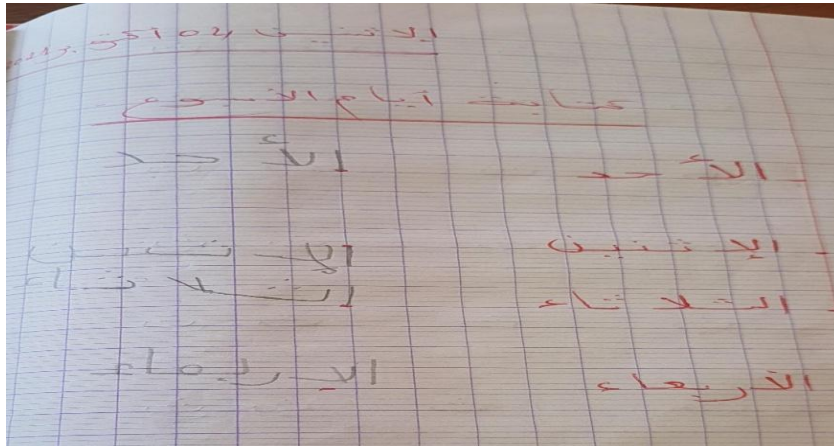 الإثنين 02 أكتوبر
كتابة أيام الأسبوع
الأحد الأحد
الإثنين الإثنين
الثلاثاء الثلاثاء
الأربعاء الإربعاء